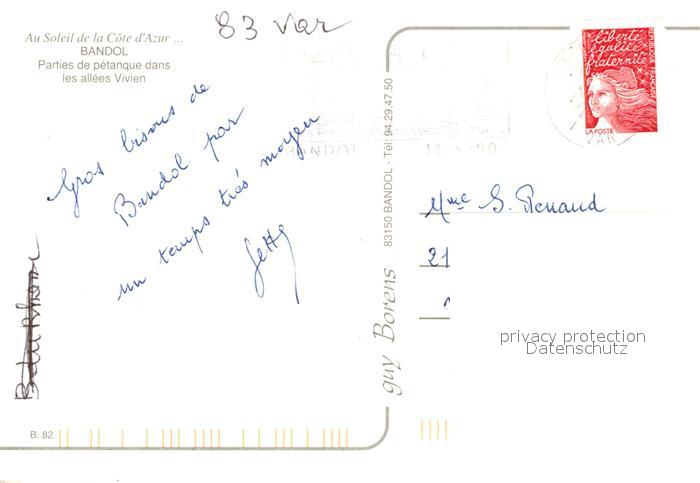 83 Var
Au Soleil de la Côte d'Azur ...
BANDOL
Parties de pétanque dans
les allées Vivien
Gros bisous de
Bandol par
un temps très moyen
B. 82
guy Borens
83150 BANDOL - Tél. 94.29.47.50
BANDOL
VAR
liberté
égalité
fraternité
RÉPUBLIQUE FRANÇAISE
LA POSTE
Mme S. Renaud
21
privacy protection
Datenschutz